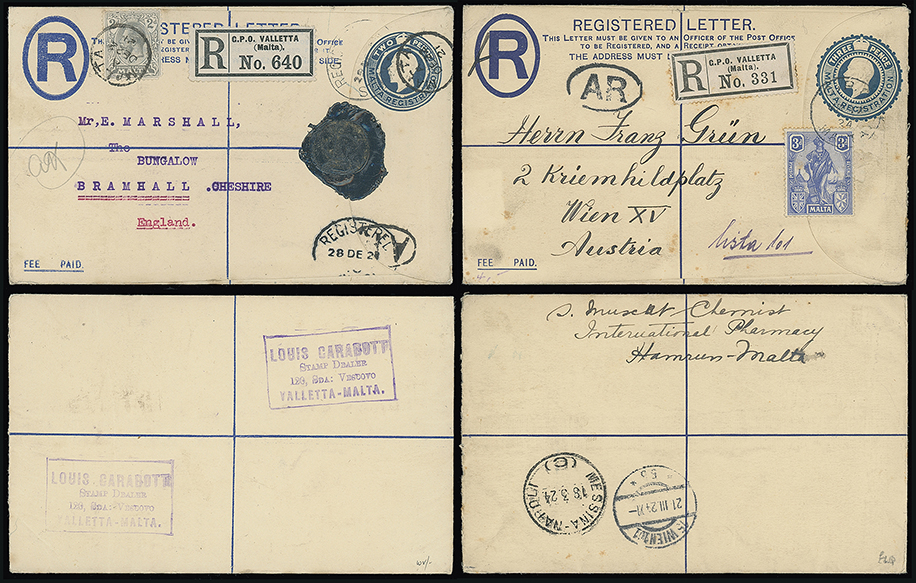 REGISTERED LETTER.
THIS LETTER MUST BE GIVEN TO AN OFFICER OF THE POST OFFICE
TO BE REGISTERED, AND A RECEIPT OBTAINED
THE ADDRESS MUST
R
R
G.P.O. VALLETTA
(Malta).
No. 640
TWO PENCE
MALTA REGISTRATION
Mr,E. MARSHALL,
The
BUNGALOW
BRAMHALL .CHESHIRE
England.
REGISTERED
28 DE 21
FEE PAID.
REGISTERED LETTER.
THIS LETTER MUST BE GIVEN TO AN OFFICER OF THE POST OFFICE
TO BE REGISTERED, AND A RECEIPT
THE ADDRESS MUST
R
AR
R
G.P.O. VALLETTA
(Malta).
No. 331
THREE PENCE
MALTA REGISTRATION
Herrn Franz Grün
2 Kriemhildplatz
Wien XV
Austria
3d
MALTA
FEE PAID.
LOUIS CARABOTT
STAMP DEALER
129, SDA: VESCOVO
VALLETTA-MALTA.
LOUIS CARABOTT
STAMP DEALER
129, SDA: VESCOVO
VALLETTA-MALTA.
S. Muscat Chemist
International Pharmacy
Hamrun-Malta
MESSINA-NAPOLI
(C)
18.3.24
21 III 24
WIEN 101